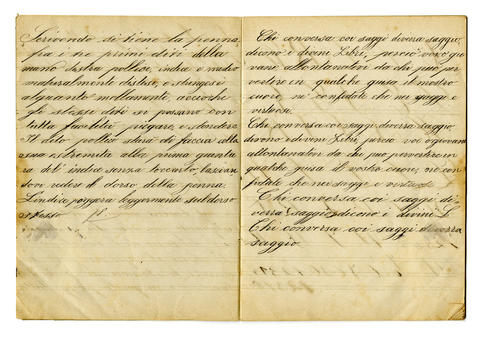 Scrivendo si tiene la penna
fra e tre primi diti della
mano destra pollice, indice e medio
naturalmente distese, e stringesi
alquanto mollemente, acciochè
gli stessi diti si possano con
tutta facilità piegare, e stendere
Il dito pollice starà di faccia alla
sua estremità alla prima giuntu
ra del indice senza toccarlo, lascian
dovi vedere il dorso della penna.
L'indice poggerà leggermente sul dorso
Chi conversa coi saggi diverrà saggio,
dicono i divini Libri, perciò voi o gio
vani allontanatevi da chi può per
vertere in qualche guisa il vostro
cuore, nè confidate che nei saggi e
virtuosi
Chi conversa coi saggi diverrà saggio,
dicono i divini Libri, perciò voi o giovani
allontanatevi da chi può pervertere in
qualche guisa il vostro cuore, nè con
fidate che nei saggi e virtuosi
Chi conversa coi saggi di
verrà saggio, dicono i divini L
Chi conversa coi saggi diverrà
saggio